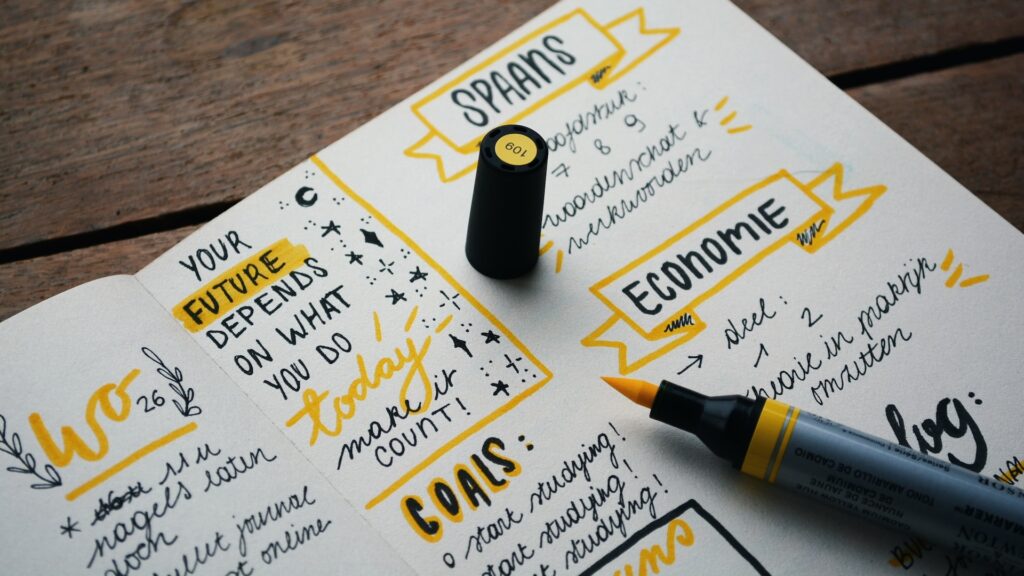 wo
26
11 u
* nagels laten
doch
bullet journal
online
YOUR
FUTURE
DEPENDS
ON WHAT
YOU DO
today
make it
COUNT!
GOALS:
o start studying!
start studying!
start studying!
SPAANS
hoofdstuk:
7 8 9
woordenschat &
werkwoorden
ECONOMIE
→ deel:
1 2
theorie in praktijk
omzetten
log:
109
TONO AMARILLO DE CADMIO
DE CADMIUM